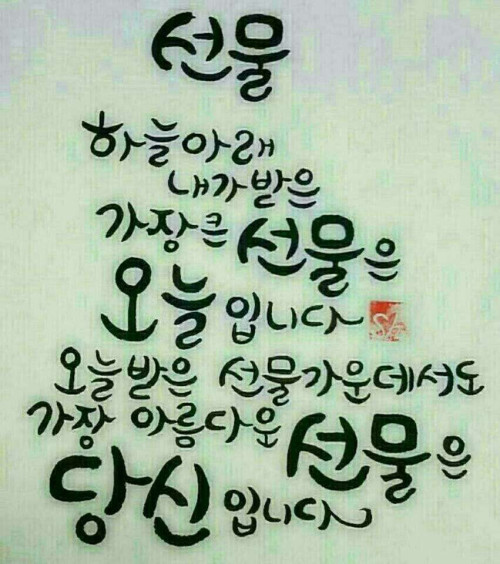 선물
하늘아래
내가받은
가장큰 선물은
오늘입니다
오늘받은 선물가운데서도
가장 아름다운 선물은
당신입니다